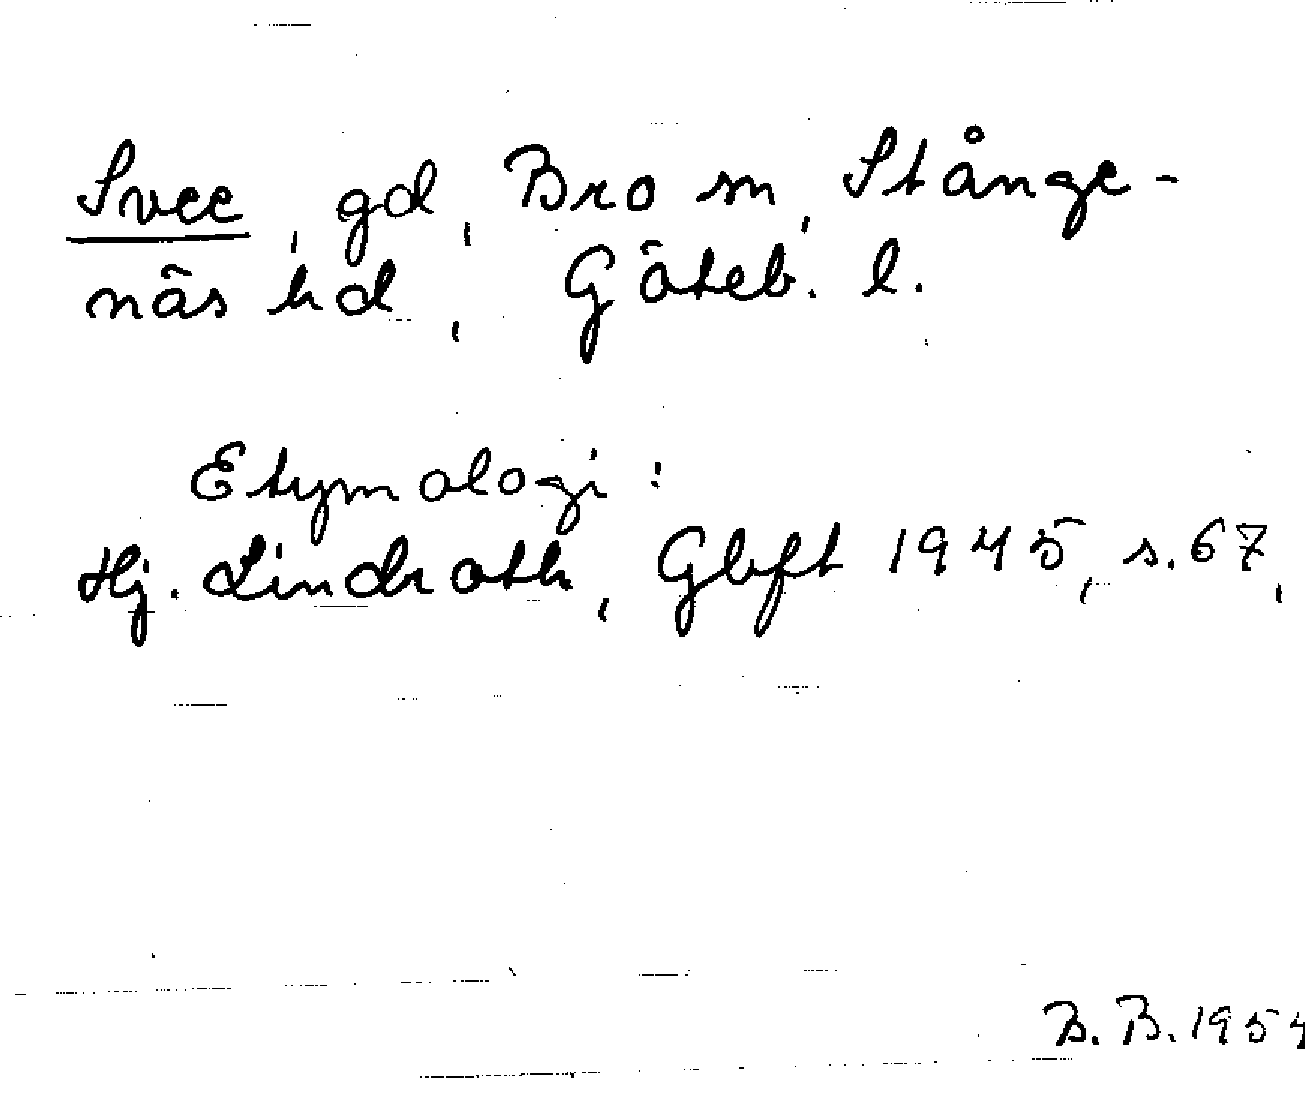 Svee, gd, Bro sn, Stånge-
näs hd, Göteb. l.
Etymologi:
Hj. Lindroth, Gbgft 1945, s. 67,
B. B. 1954